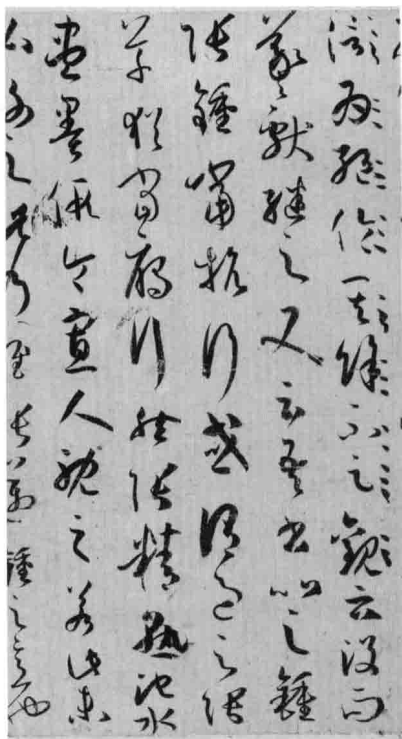 為絕倫其餘不足觀云沒而
羲獻繼之又云吾書比之鍾
張鍾當抗行或謂過之張
草猶當雁行然張精熟池水
盡墨假令寡人耽之若此未
必謝之此乃推張邁鍾之意也